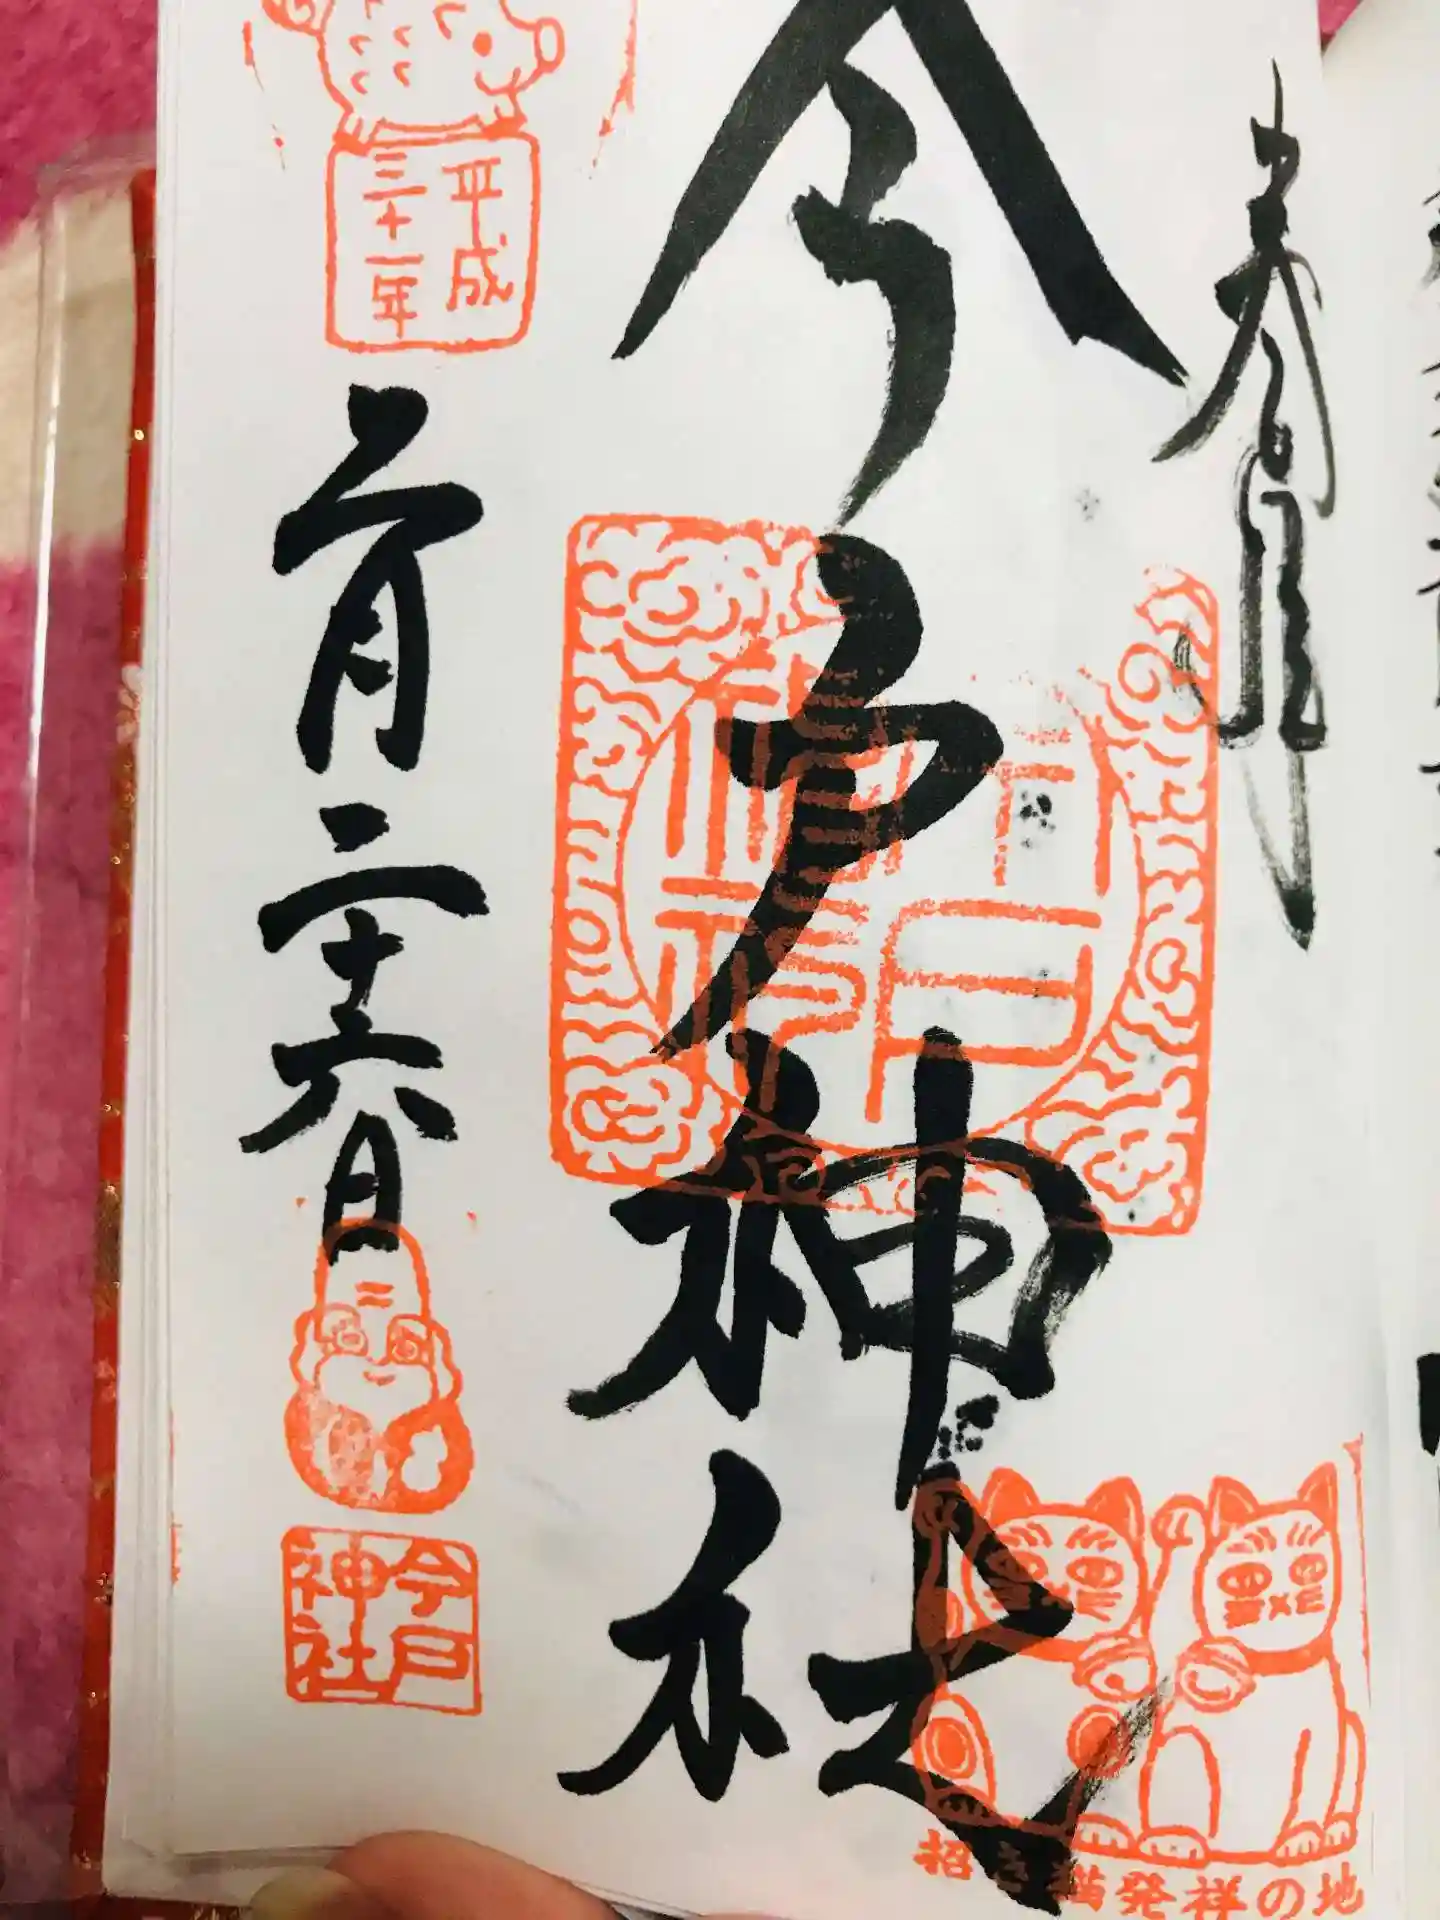 奉拝
今戸神社
平成
三十一年
二月二十六日
今戸
神社
招き猫発祥の地